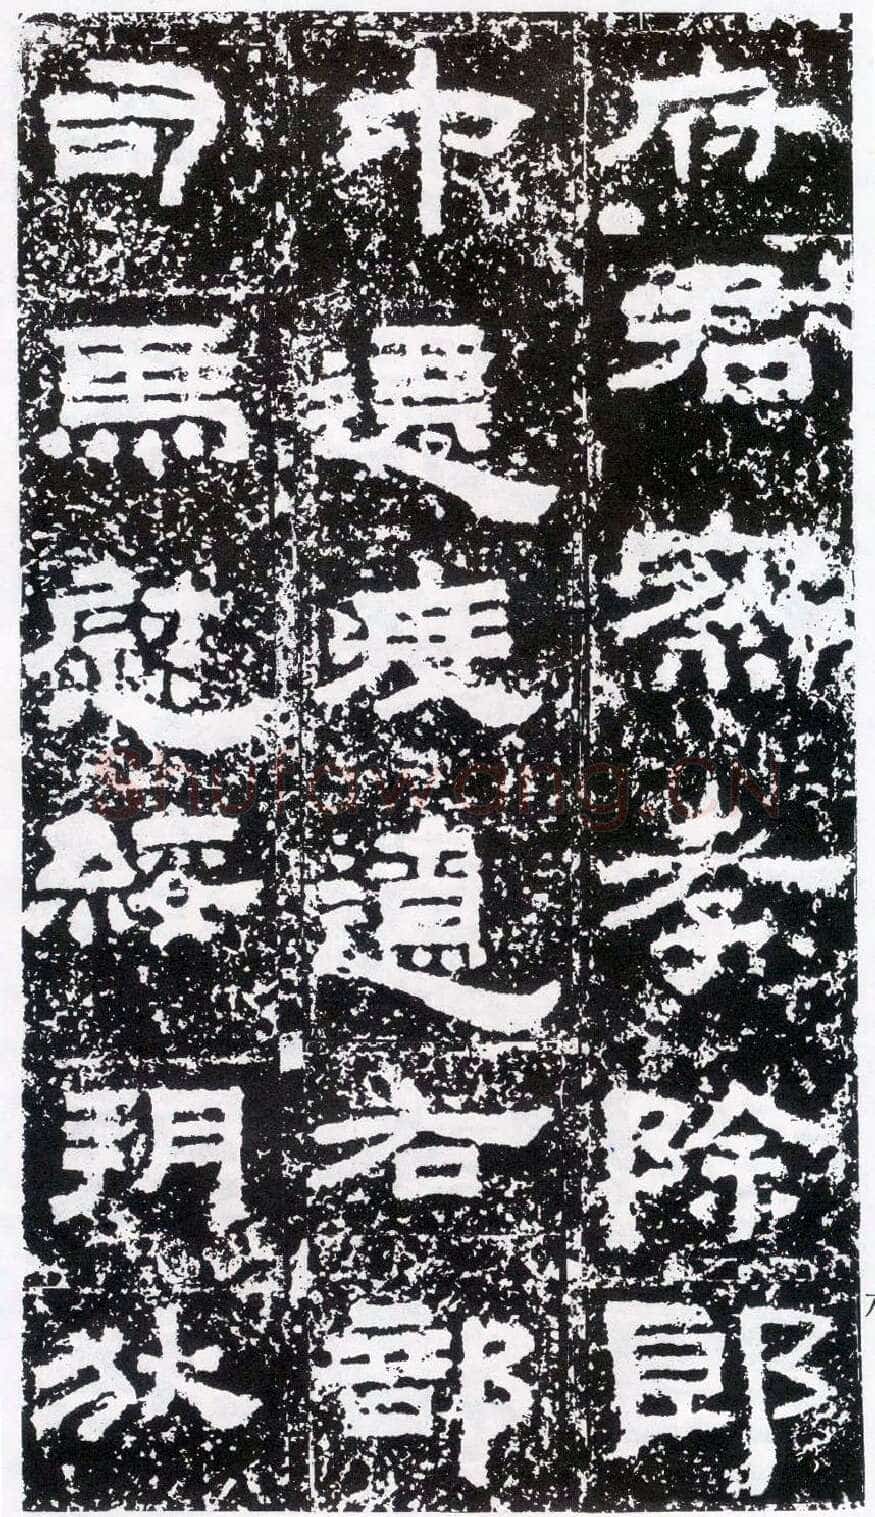 府君察孝除郎
中遷度遼右部
司馬慰綏朔狄
shufawang.CN